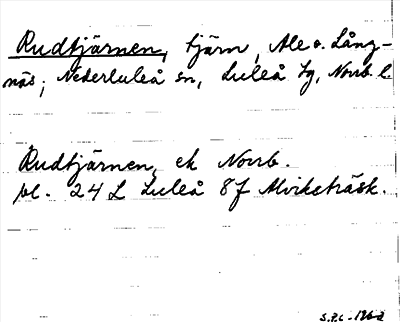 Rudtjärnen, tjärn, Ale o. Lång-
näs; Nederluleå sn, Luleå tg, Norrb. l.
Rudtjärnen, ek Norrb.
bl. 24 L Luleå 8f Alviksträsk.
S.P.L.